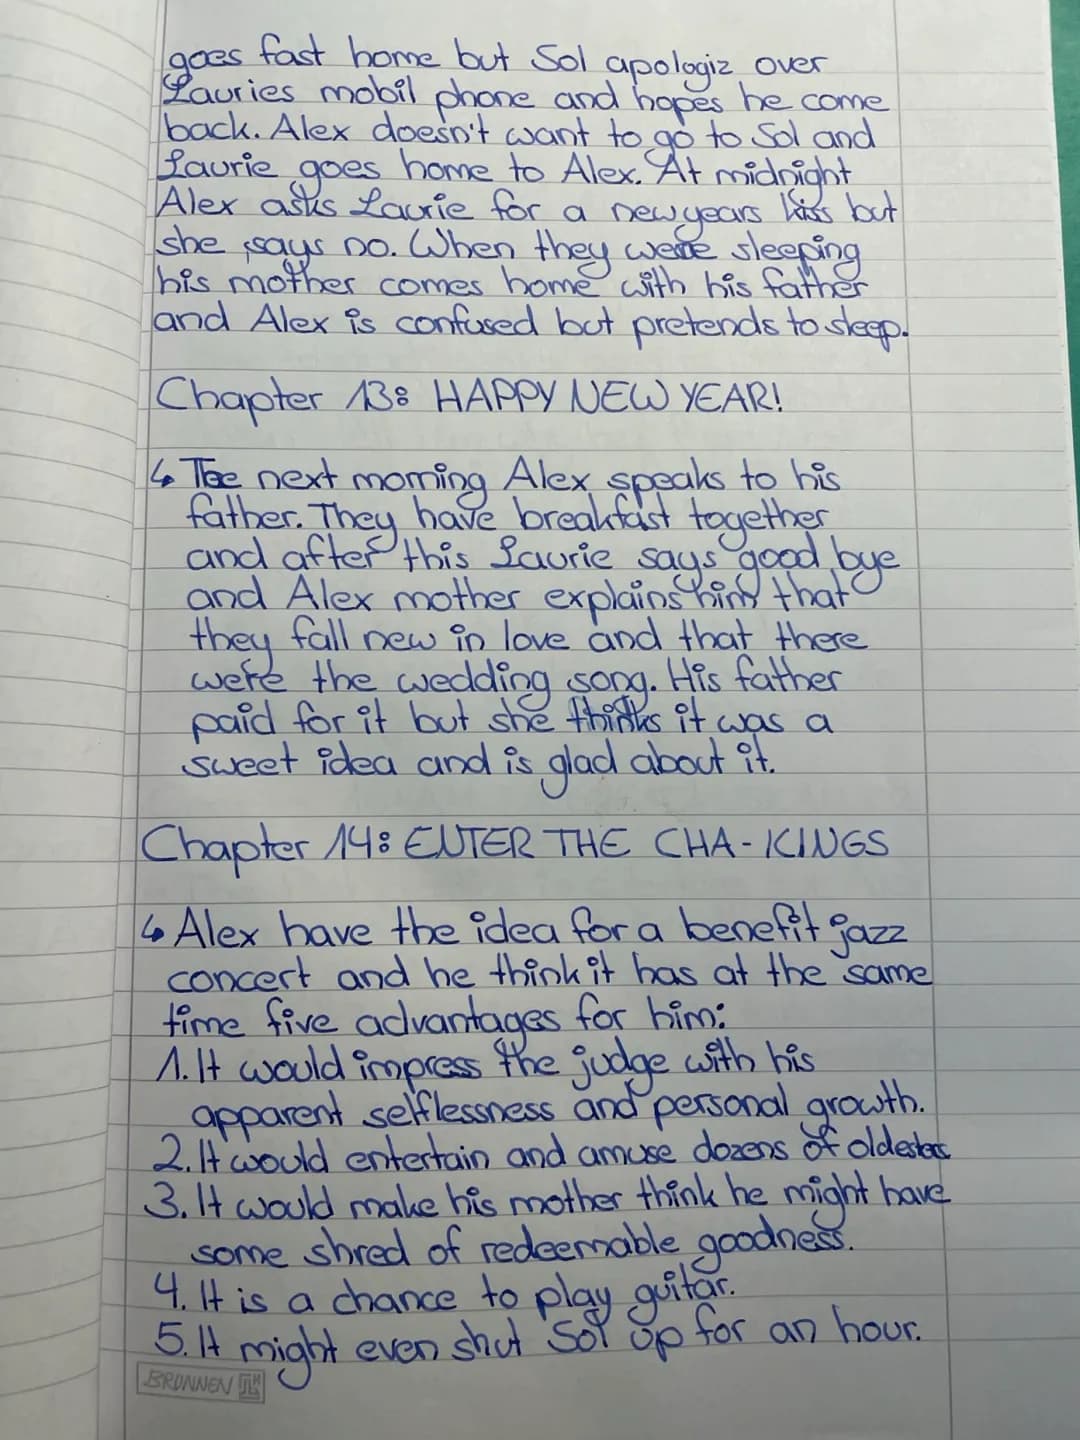 goes fast home but Sol apologiz over
Lauries mobil phone and hopes he come
back. Alex doesn't want to go to Sol and
Laurie goes home to Alex. At midnight
Alex asks Laurie for a newyears kiss but
she says no. When they were sleeping
his mother comes home with his father
and Alex is confused but pretends to sleep.
Chapter 13: HAPPY NEW YEAR!
↳ The next morning Alex speaks to his
father. They have breakfast together
and after this Laurie says good bye
and Alex mother explains him that
they fall new in love and that there
were the wedding song. His father
paid for it but she thinks it was a
sweet idea and is glad about it.
Chapter 14: ENTER THE CHA-KINGS
↳ Alex have the idea for a benefit jazz
concert and he think it has at the same
time five advantages for him:
1. It would impress the judge with his
apparent selflessness and personal growth.
2. It would entertain and amuse dozens of
3. It would make his mother think he might have
some shred of redeemable goodness.
4. It is a chance to play guitar.
5. It might even shut Sol up for an hour.
BRUNNEN